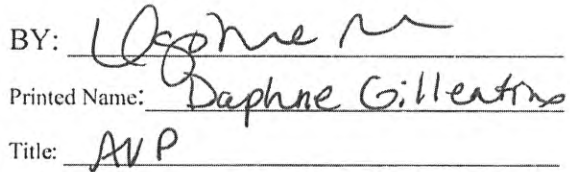 BY: Daphne
Printed Name: Daphne Gillentine
Title: AVP